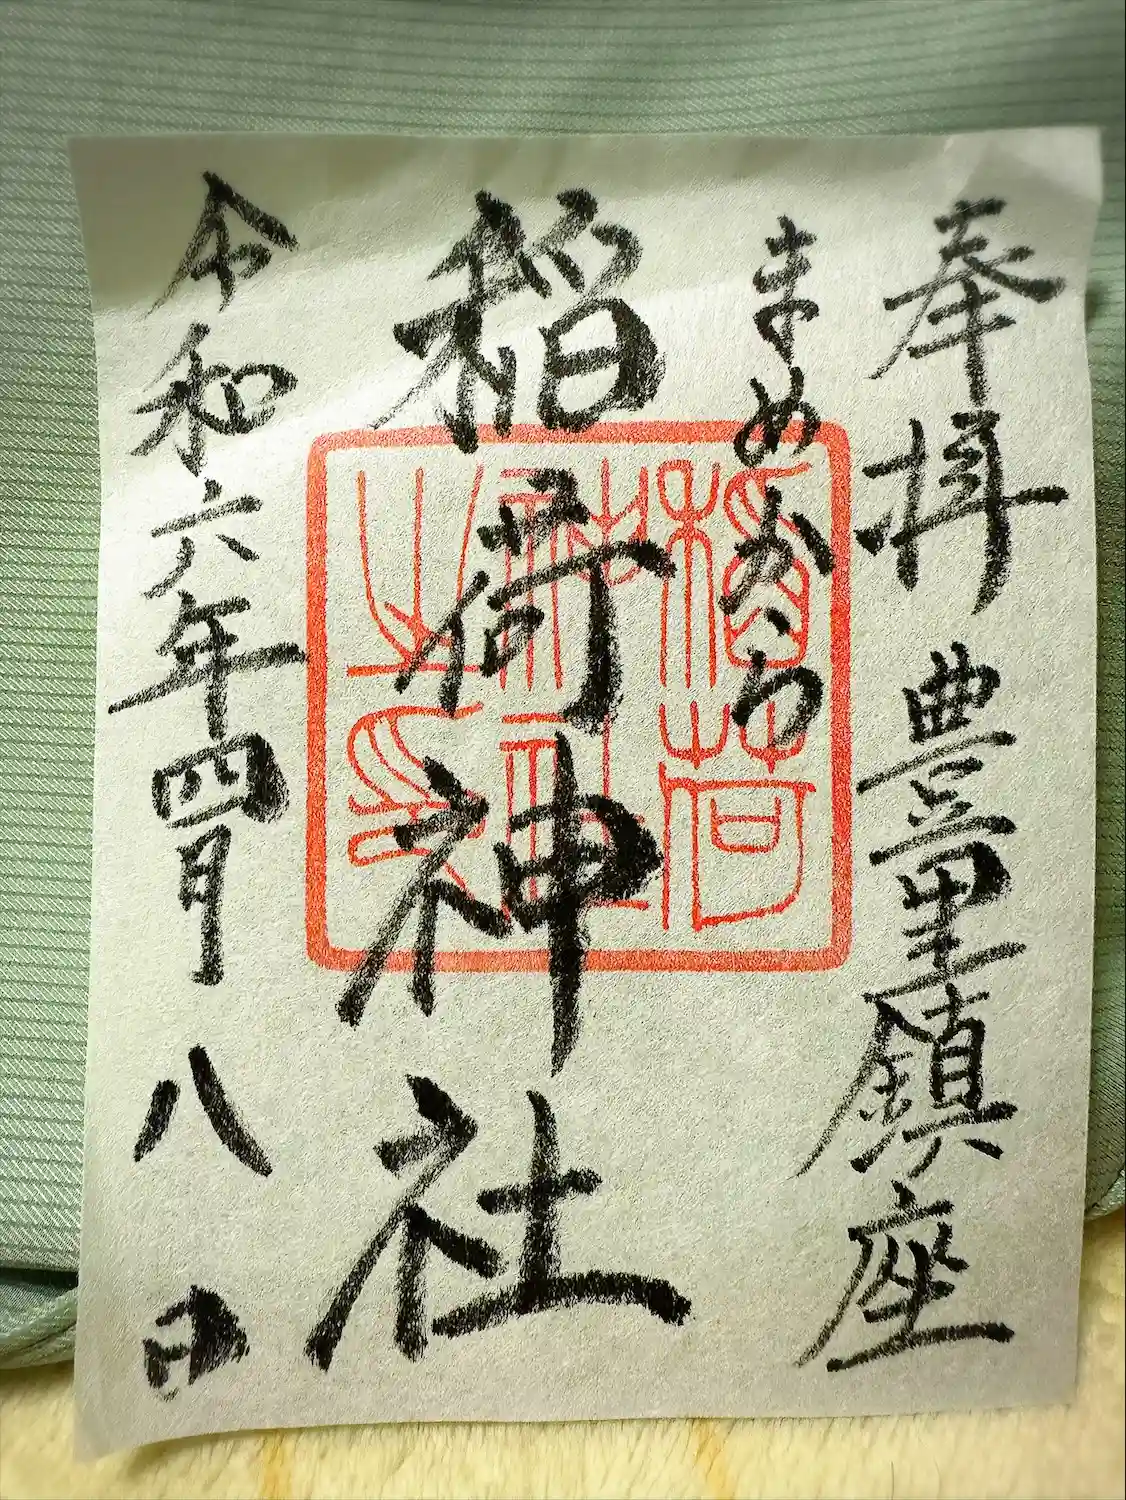 奉拝 豊里鎮座
稲荷神社
令和六年四月八日
稲荷
神社
之印